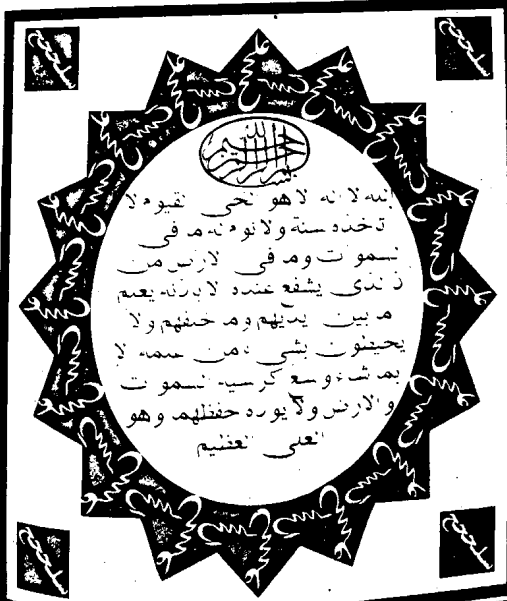 بسم الله الرحمن الرحيم
الله لا اله الا هو الحي القيوم لا
تاخذه سنة ولا نوم له ما في
السموات وما في الارض من
ذا الذي يشفع عنده الا باذنه يعلم
ما بين يديهم وما خلفهم ولا
يحيطون بشيء من علمه الا
بما شاء وسع كرسيه السموات
والارض ولا يوده حفظهما وهو
العلي العظيم